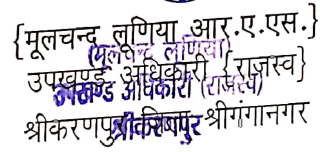 {मूलचन्द लूणिया आर.ए.एस.}
(मूलचन्द लूणिया)
उपखण्ड अधिकारी {राजस्व}
उपखण्ड अधिकारी (राजस्व)
श्रीकरणपुर जिला श्रीगंगानगर
श्रीकरणपुर